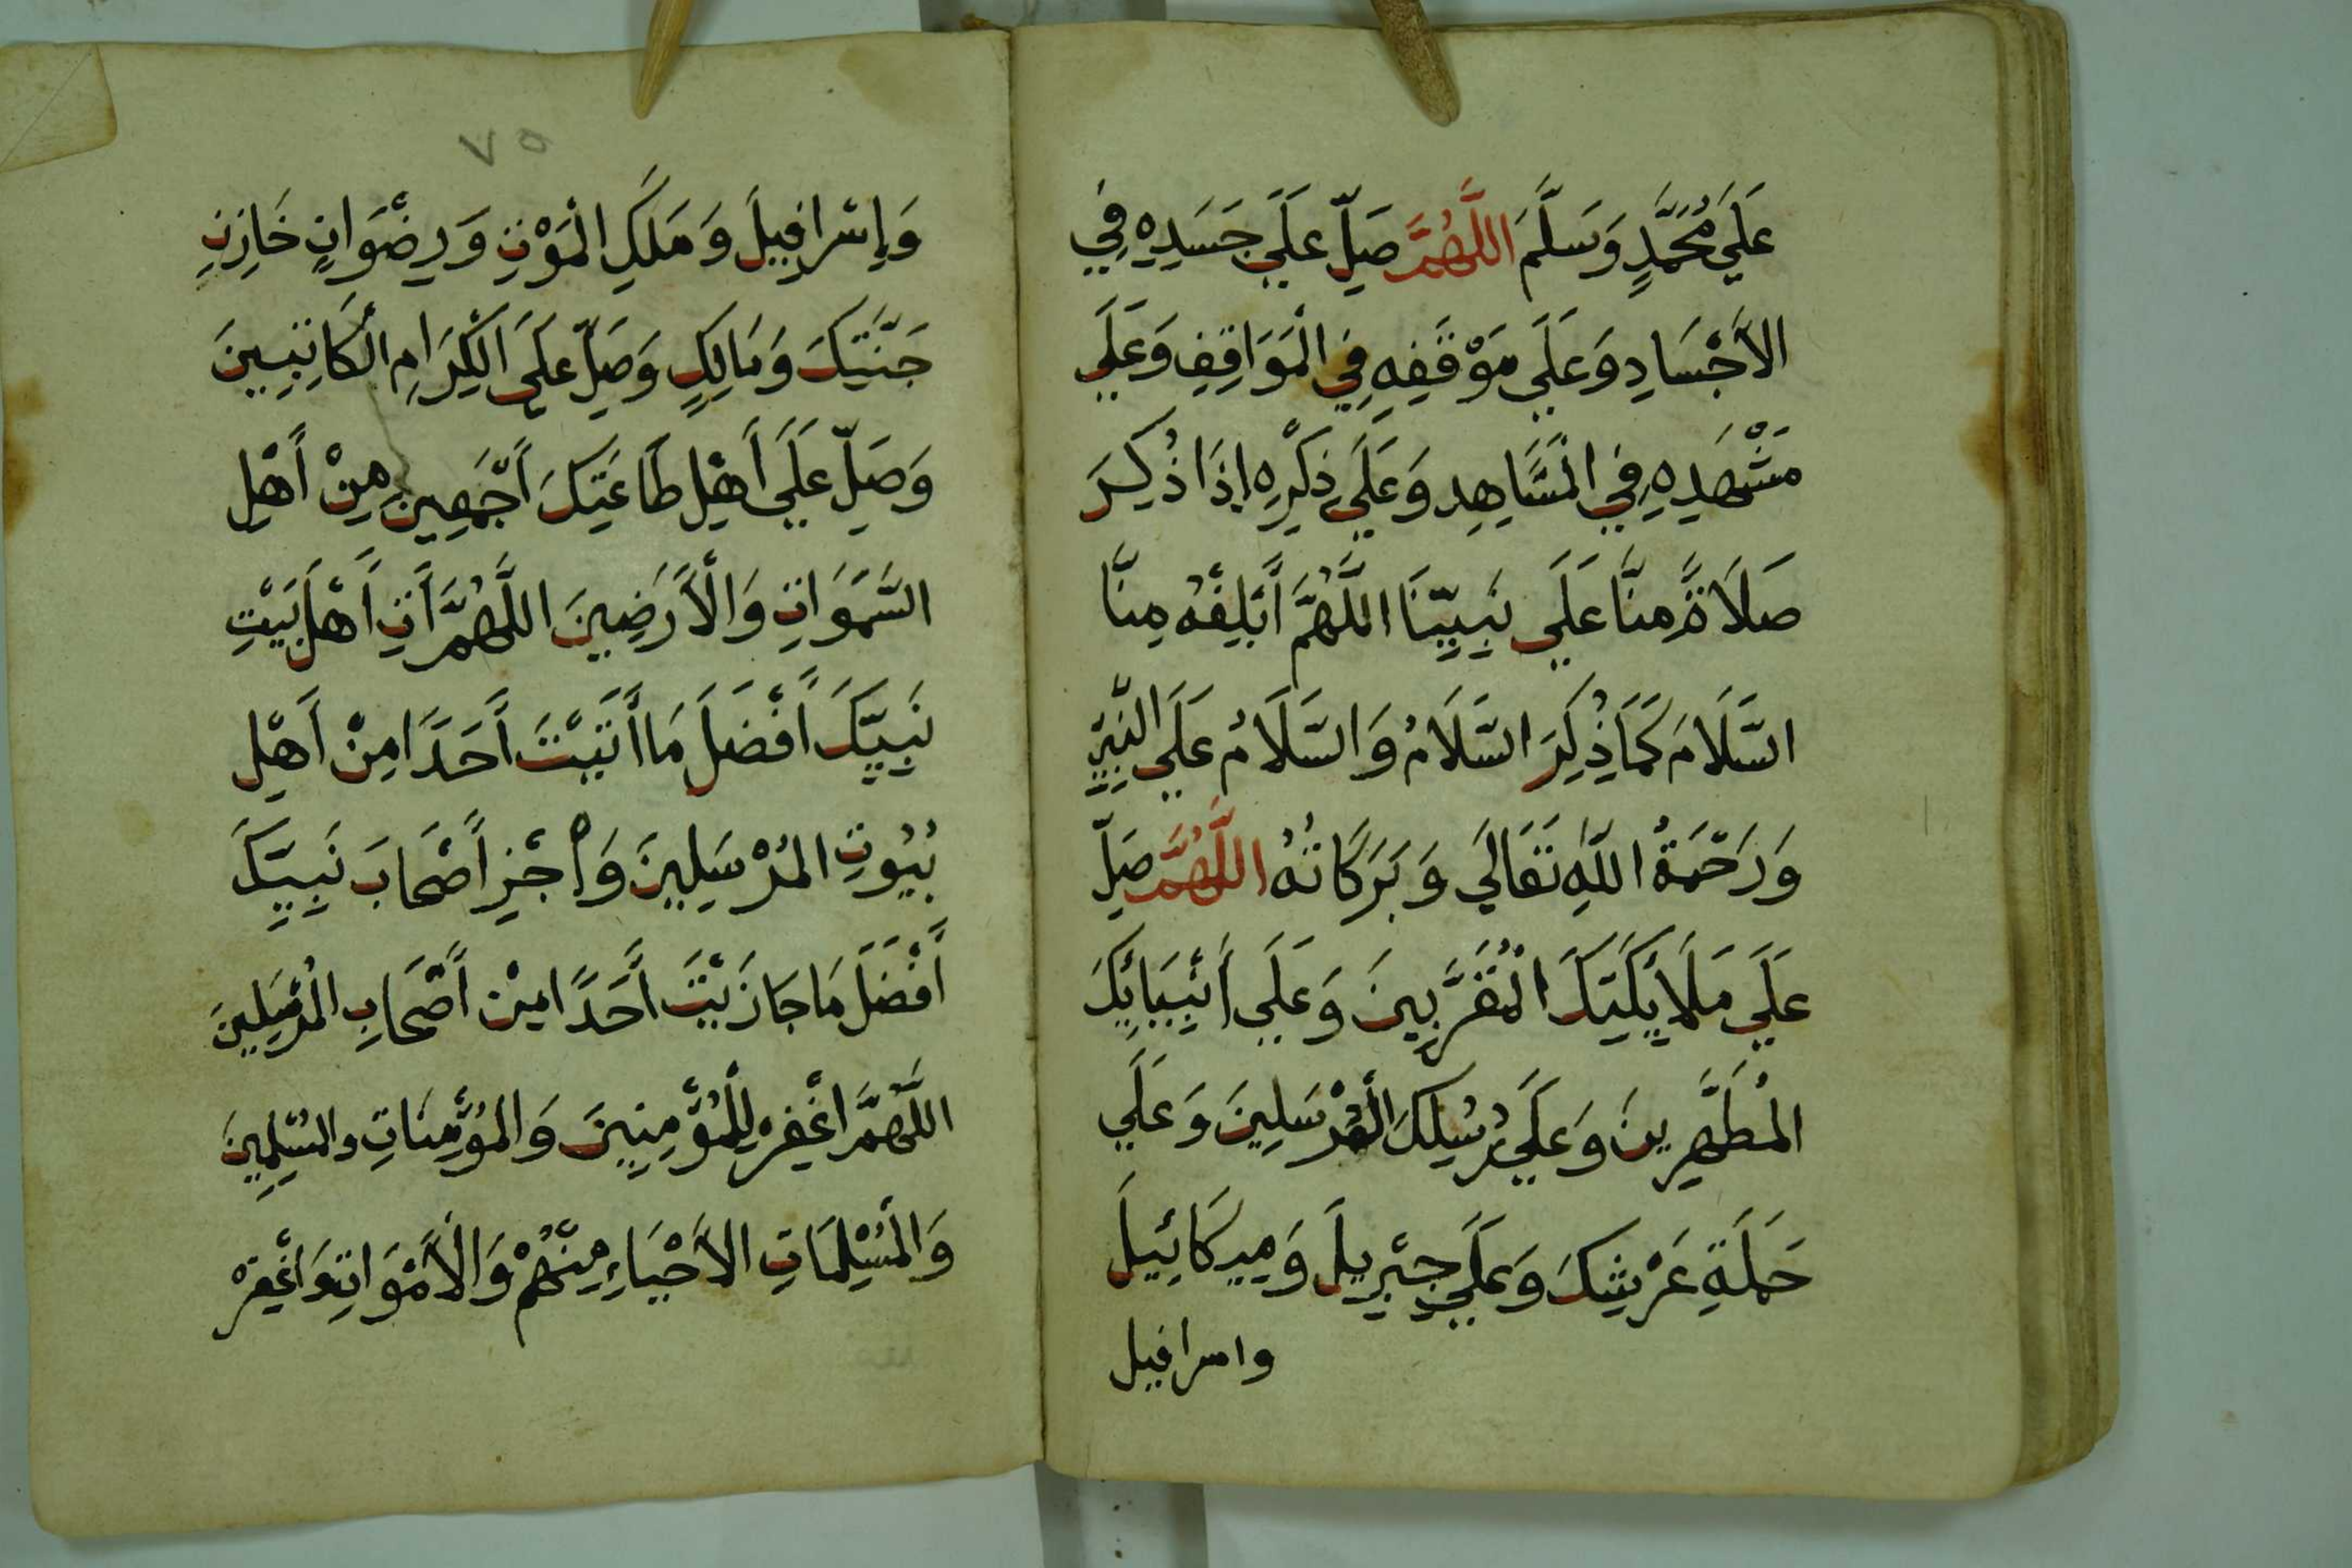 عَلَي مُحَمَّدٍ وَسَلَّمَ اللَّهُمَّ صَلِّ عَلَي جَسَدِهِ فِي
الأَجْسَادِ وَعَلَي مَوْقَفِهِ فِي الْمَوَاقِفِ وَعَلَي
مَشْهَدِهِ فِي الْمَشَاهِدِ وَعَلَي ذِكْرِهِ إِذَا ذُكِرَ
صَلَاةً مِنَّا عَلَي نَبِيِّنَا اللَّهُمَّ أَبْلِغْهُ مِنَّا
السَّلَامَ كَمَا ذُكِرَ السَّلَامُ وَالسَّلَامُ عَلَي النَّبِيِّ
وَرَحْمَةُ اللَّهِ تَعَالَي وَبَرَكَاتُهُ اللَّهُمَّ صَلِّ
عَلَي مَلَايِكَتِكَ الْمُقَرَّبِينَ وَعَلَي أَنْبِيَائِكَ
الْمُطَهَّرِينَ وَعَلَي رُسُلِكَ الْمُرْسَلِينَ وَعَلَي
حَمَلَةِ عَرْشِكَ وَعَلَي جِبْرِيلَ وَمِيكَائِيلَ
واسرافيل
٧٥
وَإِسْرَافِيلَ وَمَلَكِ الْمَوْتِ وَرِضْوَانٍ خَازِنِ
جَنَّتِكَ وَمَالِكٍ وَصَلِّ عَلَي الْكِرَامِ الْكَاتِبِينَ
وَصَلِّ عَلَي أَهْلِ طَاعَتِكَ أَجْمَعِينَ مِنْ أَهْلِ
السَّمَوَاتِ وَالْأَرَضِينَ اللَّهُمَّ أَتِ أَهْلَ بَيْتِ
نَبِيِّكَ أَفْضَلَ مَا أَتَيْتَ أَحَدًا مِنْ أَهْلِ
بُيُوتِ الْمُرْسَلِينَ وَأَجْزِ أَصْحَابَ نَبِيِّكَ
أَفْضَلَ مَا جَازَيْتَ أَحَدًا مِنْ أَصْحَابِ الْمُرْسَلِينَ
اللَّهُمَّ اغْفِرْ لِلْمُؤْمِنِينَ وَالْمُؤْمِنَاتِ والمُسْلِمِينَ
وَالْمُسْلِمَاتِ الأَحْيَاءِ مِنْهُمْ وَالْأَمْوَاتِ وَاغْفِرْ